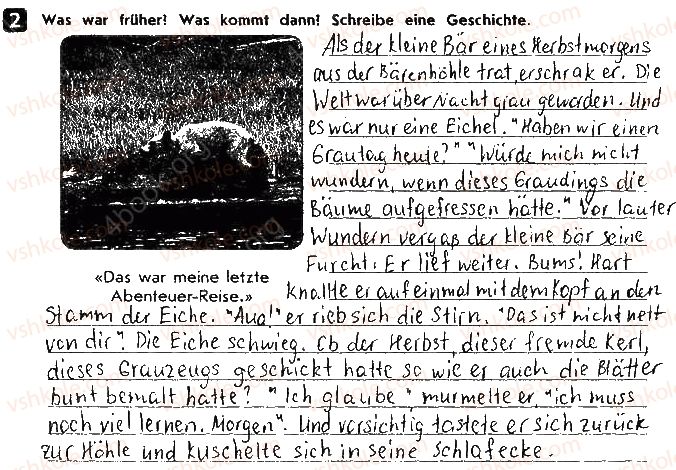 2 Was war früher? Was kommt dann? Schreibe eine Geschichte.
Als der kleine Bär eines Herbstmorgens
aus der Bärenhöhle trat, erschrak er. Die
Welt war über Nacht grau geworden. Und
es war nur eine Eichel. "Haben wir einen
Grautag heute?" "Würde mich nicht
wundern, wenn dieses Graudings die
Bäume aufgefressen hätte." Vor lauter
Wundern vergaß der kleine Bär seine
Furcht: Er lief weiter. Bums! Hart
«Das war meine letzte
Abenteuer-Reise.»
knallte er auf einmal mit dem Kopf an den
Stamm der Eiche. "Aua!" er rieb sich die Stirn. "Das ist nicht nett
von dir". Die Eiche schwieg. Ob der Herbst, dieser fremde Kerl,
dieses Grauzeugs geschickt hatte so wie er auch die Blätter
bunt bemalt hatte? "Ich glaube" murmelte er, "ich muss
noch viel lernen. Morgen". Und vorsichtig tastete er sich zurück
zur Höhle und kuschelte sich in seine Schlafecke.